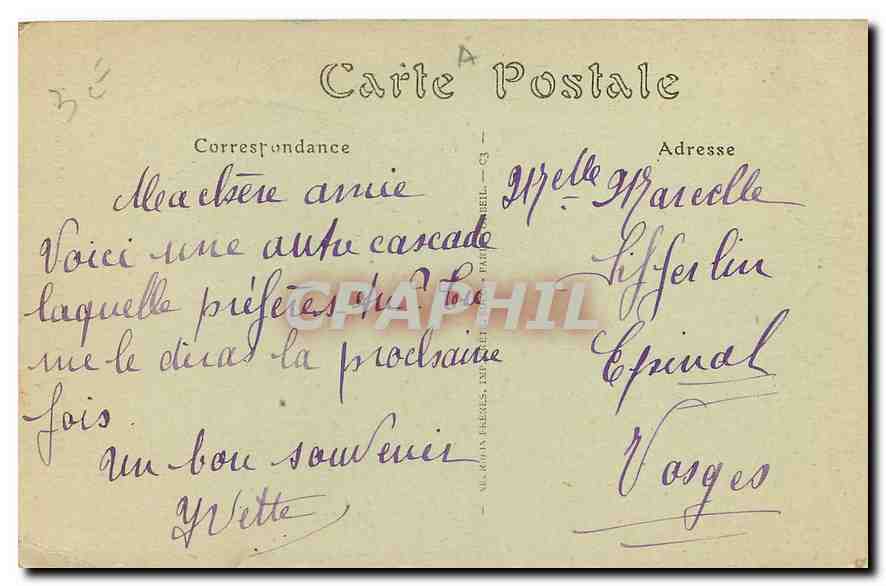 Carte Postale
A
Correspondance
Adresse
Ma chère amie
Voici une autre cascade
laquelle préfères tu? Tu
me le diras la prochaine
fois.
Un bon souvenir
Yvette
Melle Marcelle
Lifferlin
Epinal
Vosges
FRÈRES, IMP.
C3
CPAPHIL